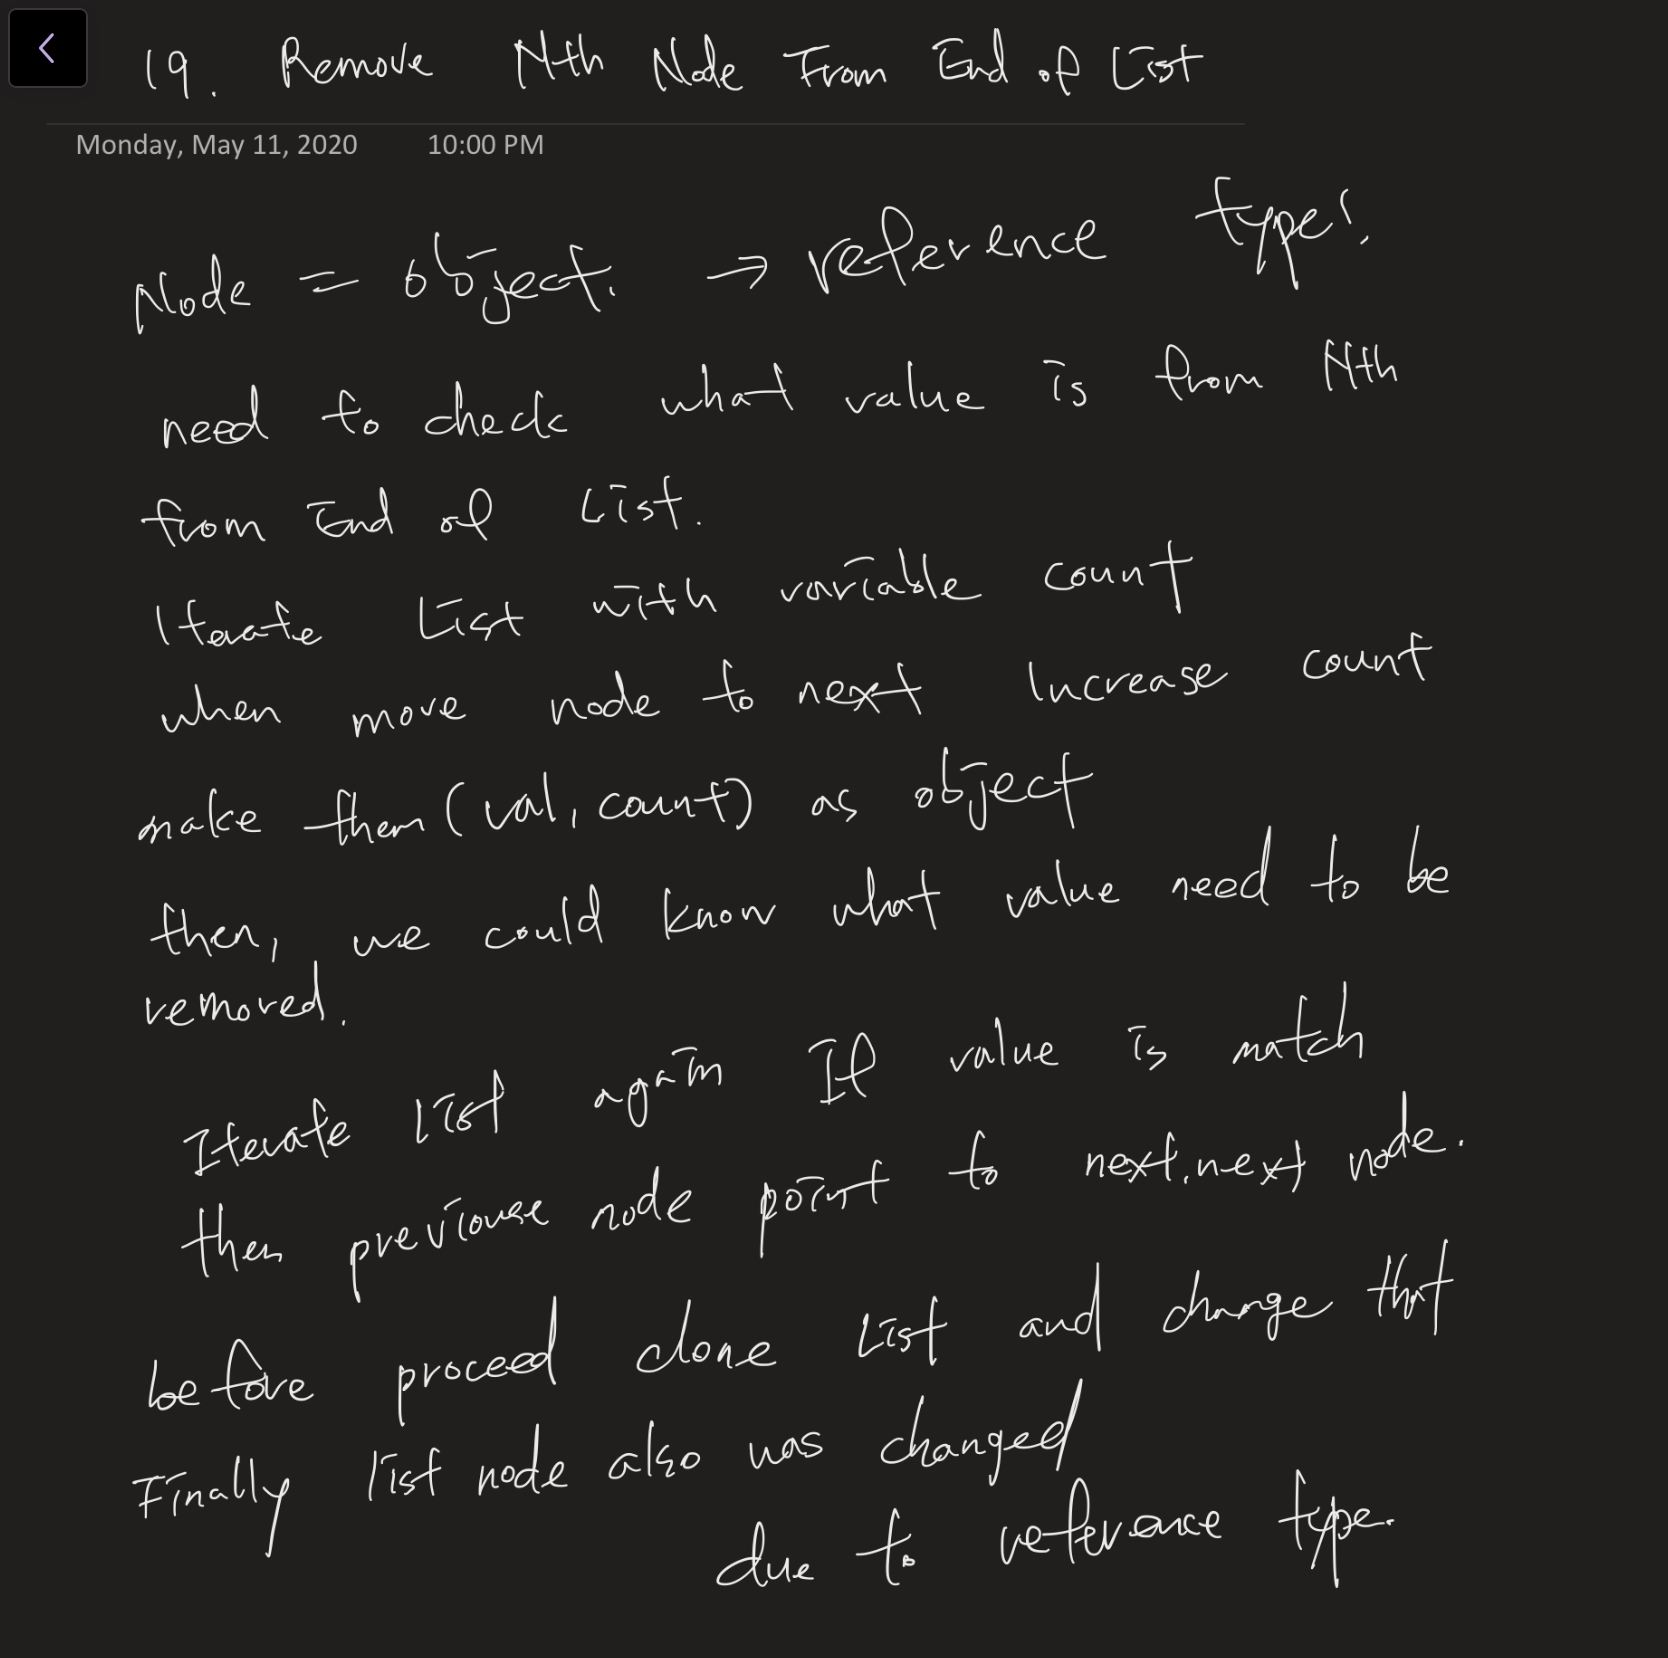 19. Remove Nth Node From End of List
Monday, May 11, 2020 10:00 PM
Node = object. → reference type!
need to check what value is from Nth
from End of List.
Iterate List with variable count
when move node to next Increase count
make them (val, count) as object
then, we could know what value need to be
removed.
Iterate list again If value is match
then previouse node point to next.next node.
before proceed clone List and change that
Finally list node also was changed
due to reference type.